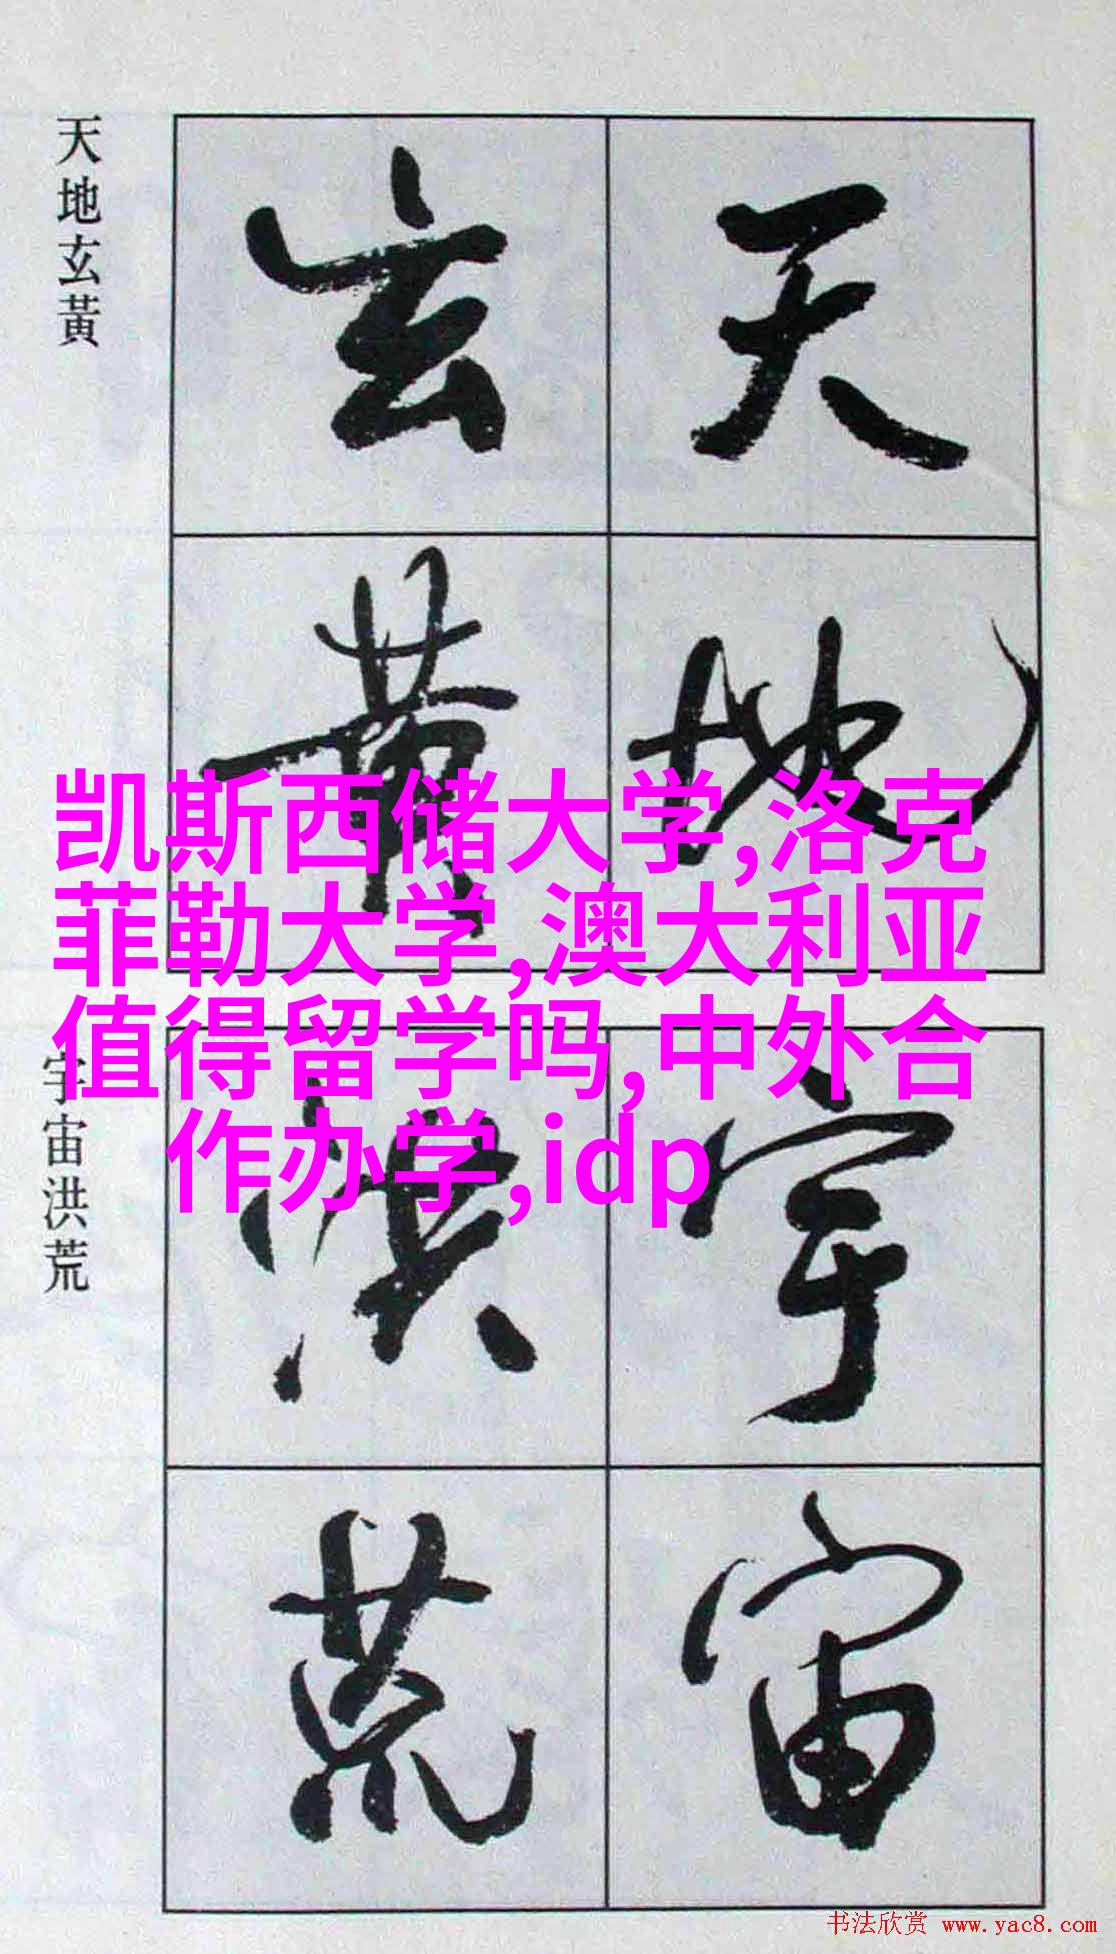 天地玄黃
天地
玄黃
凯斯西储大学,洛克
菲勒大学,澳大利亚
值得留学吗,中外合
作办学,idp
宇宙洪荒
宇宙
洪荒
书法欣赏 www.yac8.com